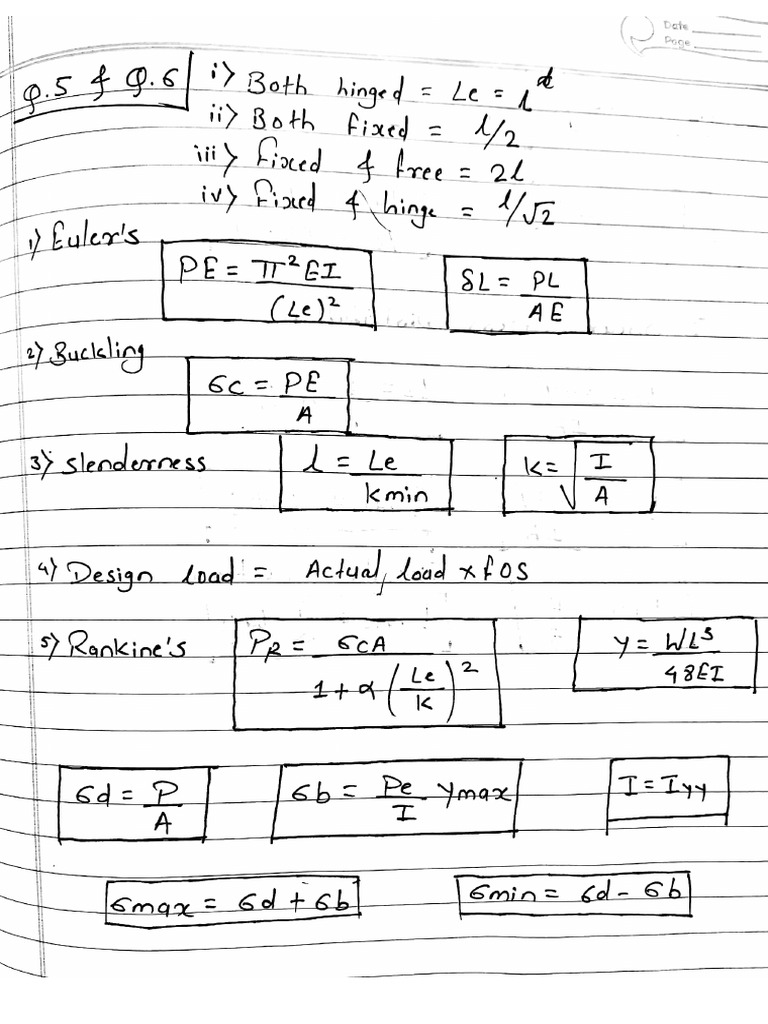 Date
Page
Q.5 & Q.6
i> Both hinged = Le = l
ii> Both fixed = l/2
iii> fixed & free = 2l
iv> fixed & hinge = l/√2
1> Euler's
PE = π²EI / (Le)²
δL = PL / AE
2> Buckling
σc = PE / A
3> Slenderness
λ = Le / kmin
k = √(I / A)
4> Design load = Actual load x fOS
5> Rankine's
PR = σcA / 1 + α (Le / k)²
y = WL³ / 48EI
σd = P / A
σb = Pe / I ymax
I = Iyy
σmax = σd + σb
σmin = σd - σb